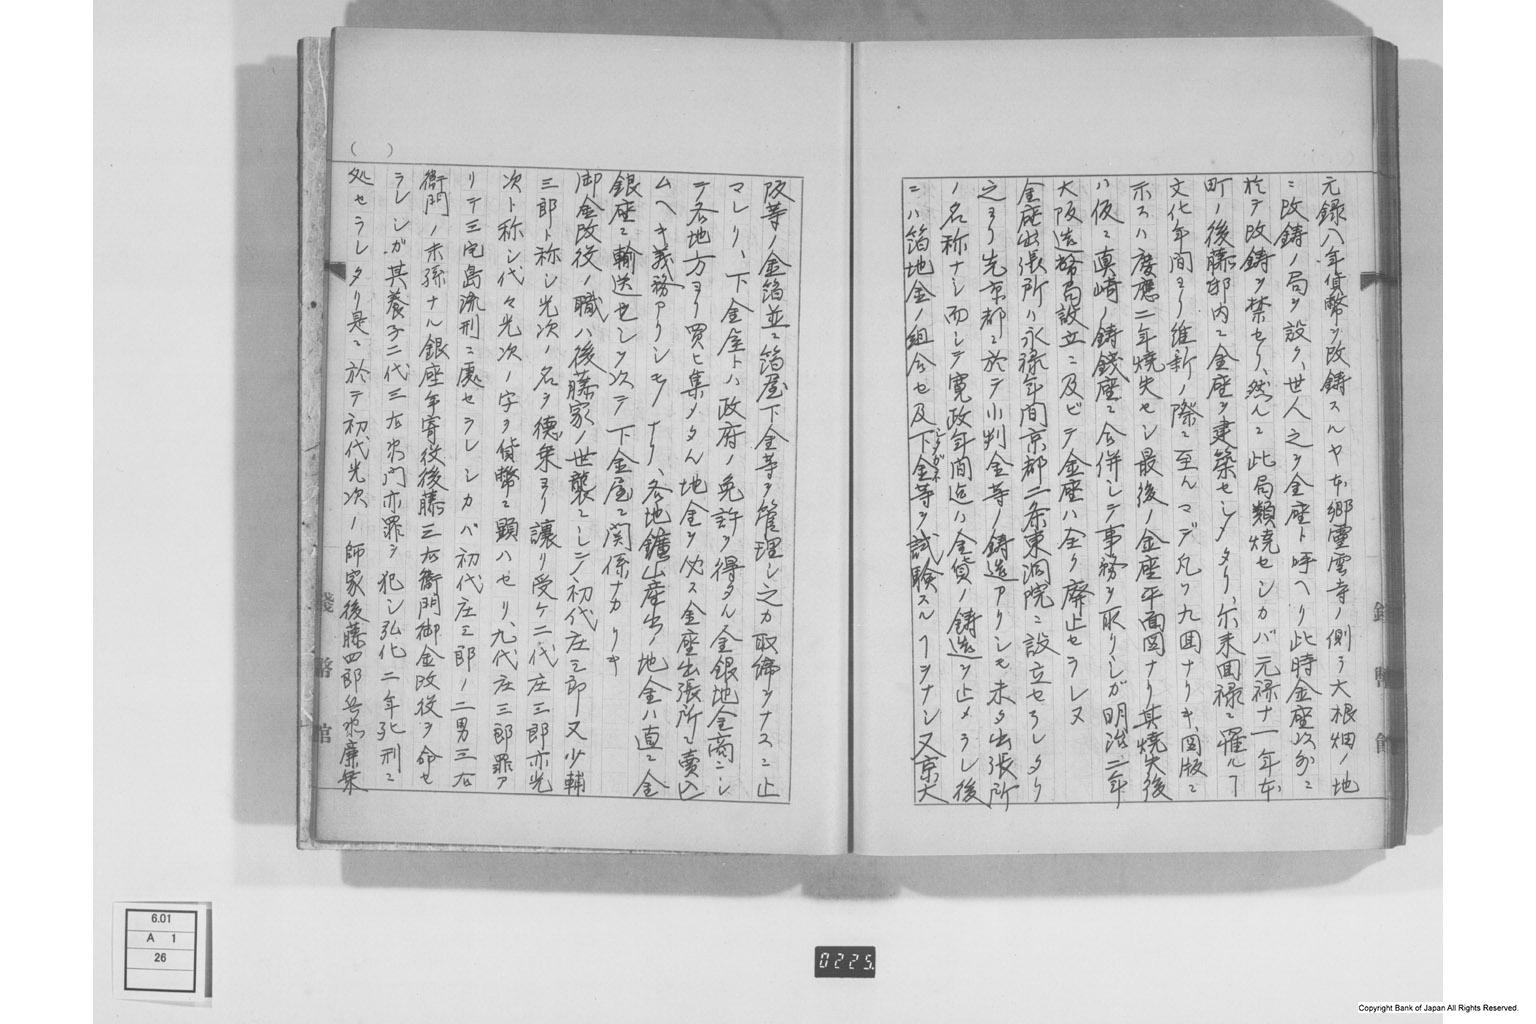 元録八年貨幣ヲ改鋳スルヤ本郷霊雲寺ノ側ラ大根畑ノ地
ニ改鋳ノ局ヲ設ク、世人之ヲ金座ト呼ヘリ此時金座以外ニ
於テ改鋳ヲ禁セリ、然ルニ此局類焼セシカバ元禄十一年本
町ノ後藤邸内ニ金座ヲ建築セシメタリ、尓来回禄ニ罹ルヿ
文化年間ヨリ維新ノ際ニ至ルマデ凡ソ九回ナリキ、図版ニ
示スハ慶應二年焼失セシ最後ノ金座平面図ナリ其焼失後
ハ仮ニ真崎ノ鋳錢座ニ合併シテ事務ヲ取リシガ明治二年
大阪造幣局設立ニ及ビテ金座ハ全ク廃止セラレヌ
金座出張所ハ永禄年間京都二条東洞院ニ設立セラレタリ
之ヨリ先京都ニ於テ小判金等ノ鋳造アリシモ未タ出張所
ノ名称ナシ而シテ寛政年間迄ハ金貨ノ鋳造ヲ止メラレ後
ニハ箔地金ノ組合セ及下金等ヲ試験スルヿヲナシ又京大
シタガネ
阪等ノ金箔並ニ箔屋下金等ヲ管理シ之カ取締ヲナスニ止
マレリ、下金屋トハ政府ノ免許ヲ得タル金銀地金商ニシ
テ各地方ヨリ買ヒ集メタル地金ヲ必ス金座出張所ニ賣込
ムヘキ義務アリシモノナリ、各地鑛山産出ノ地金ハ直ニ金
銀座ニ輸送セシヲ次テ下金屋ニ関係ナカリキ
御金改役ノ職ハ後藤家ノ世襲ニシテ初代庄三郎又少輔
三郎ト称シ光次ノ名ヲ徳乗ヨリ讓リ受ケ二代庄三郎亦光
次ト称シ代々光次ノ字ヲ貨幣ニ顕ハセリ、九代庄三郎罪ア
リテ三宅島流刑ニ處セラレシカバ初代庄三郎ノ二男三右
衛門ノ末孫ナル銀座年寄役後藤三右衛門御金改役ヲ命セ
ラレシガ其養子二代三右衛門亦罪ヲ犯シ弘化二年死刑ニ
処セラレタリ是ニ於テ初代光次ノ師家後藤四郎兵衛廉乗
錢幣館
錢幣館
6.01
A 1
26
0225.
Copyright Bank of Japan All Rights Reserved.